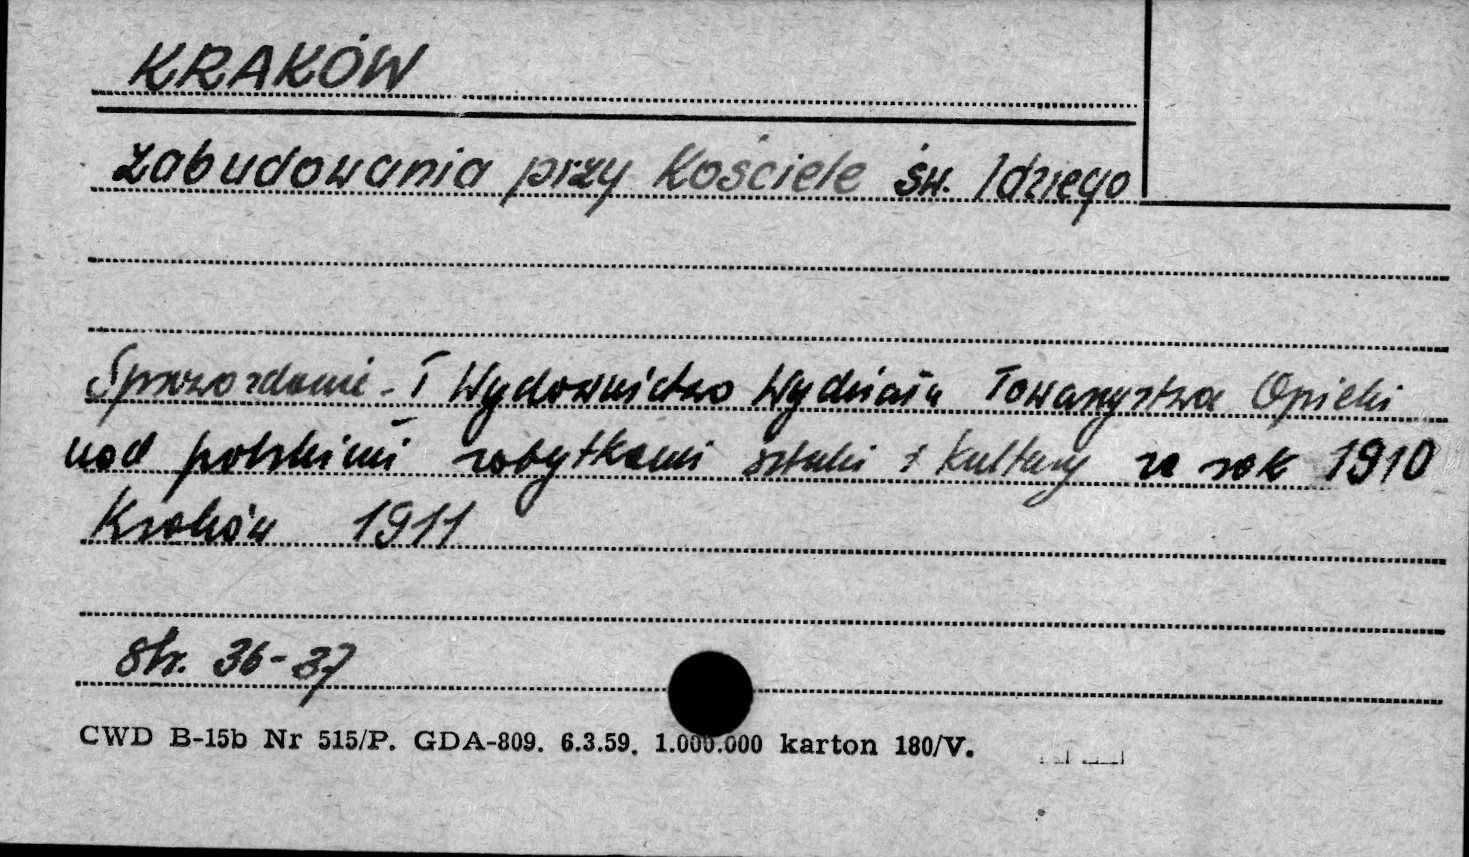 KRAKÓW
zabudowania przy Kościele św. Idziego
Sprawozdanie - I Wydawnictwo Wydziału Towarzystwa Opieki
nad polskimi zabytkami sztuki i kultury za rok 1910
Kraków 1911
Str. 36-37
CWD B-15b Nr 515/P. GDA-809. 6.3.59. 1.000.000 karton 180/V.